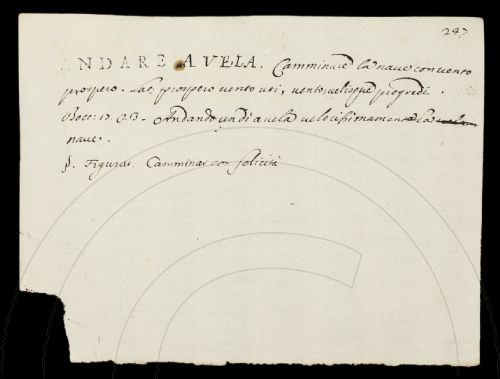 247
ANDARE A VELA. Camminare la nave con vento
prospero. Lat. prospero vento uti, ventis velisque progredi.
Bocc: n. 23. Andando un dì a vela velocissimamente la
nave.
§. Figurat. Camminar con felicità